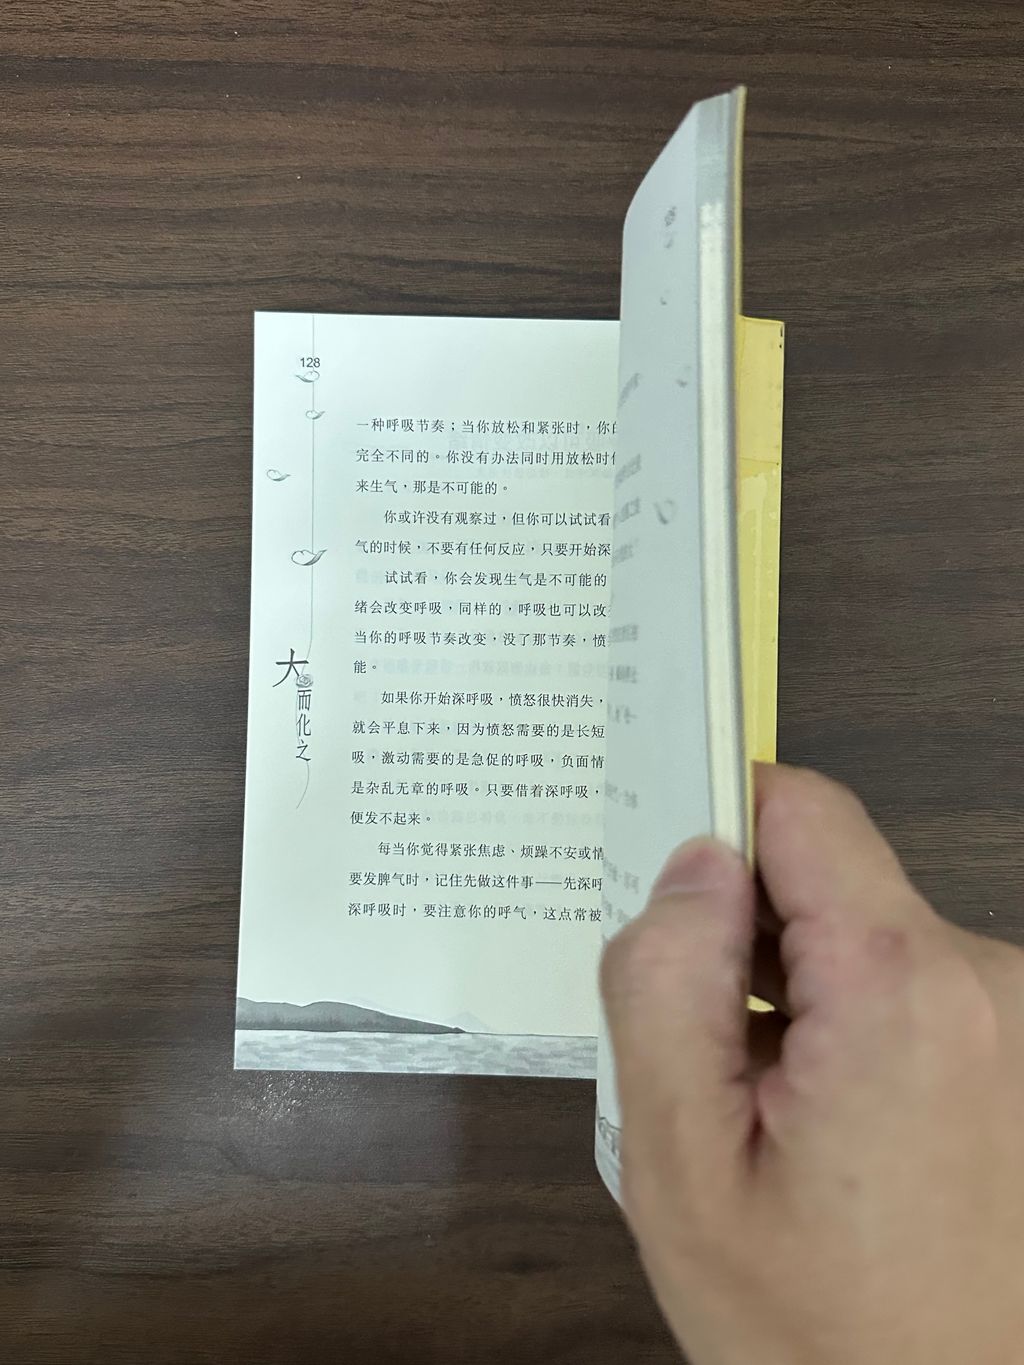 128
一种呼吸节奏；当你放松和紧张时，你的
完全不同的。你没有办法同时用放松时
来生气，那是不可能的。
你或许没有观察过，但你可以试试看
气的时候，不要有任何反应，只要开始深
试试看，你会发现生气是不可能的
绪会改变呼吸，同样的，呼吸也可以改
当你的呼吸节奏改变，没了那节奏，愤
能。
如果你开始深呼吸，愤怒很快消失，
就会平息下来，因为愤怒需要的是长短
吸，激动需要的是急促的呼吸，负面情
是杂乱无章的呼吸。只要借着深呼吸，
便发不起来。
每当你觉得紧张焦虑、烦躁不安或情
要发脾气时，记住先做这件事——先深呼
深呼吸时，要注意你的呼气，这点常被
大而化之